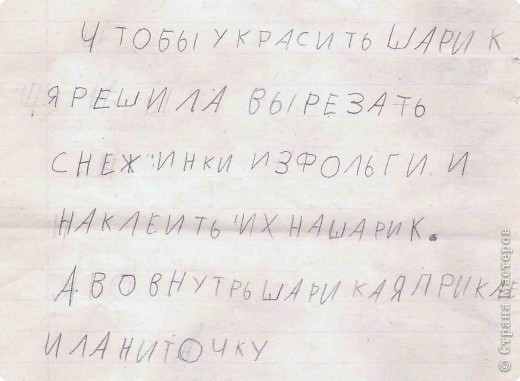 ЧТОБЫ УКРАСИТЬ ШАРИК
Я РЕШИЛА ВЫРЕЗАТЬ
СНЕЖИНКИ ИЗ ФОЛЬГИ И
НАКЛЕИТЬ ИХ НА ШАРИК.
А ВО ВНУТРЬ ШАРИКА Я ПРИКЛЕ
ИЛА НИТОЧКУ
© Страна Мастеров